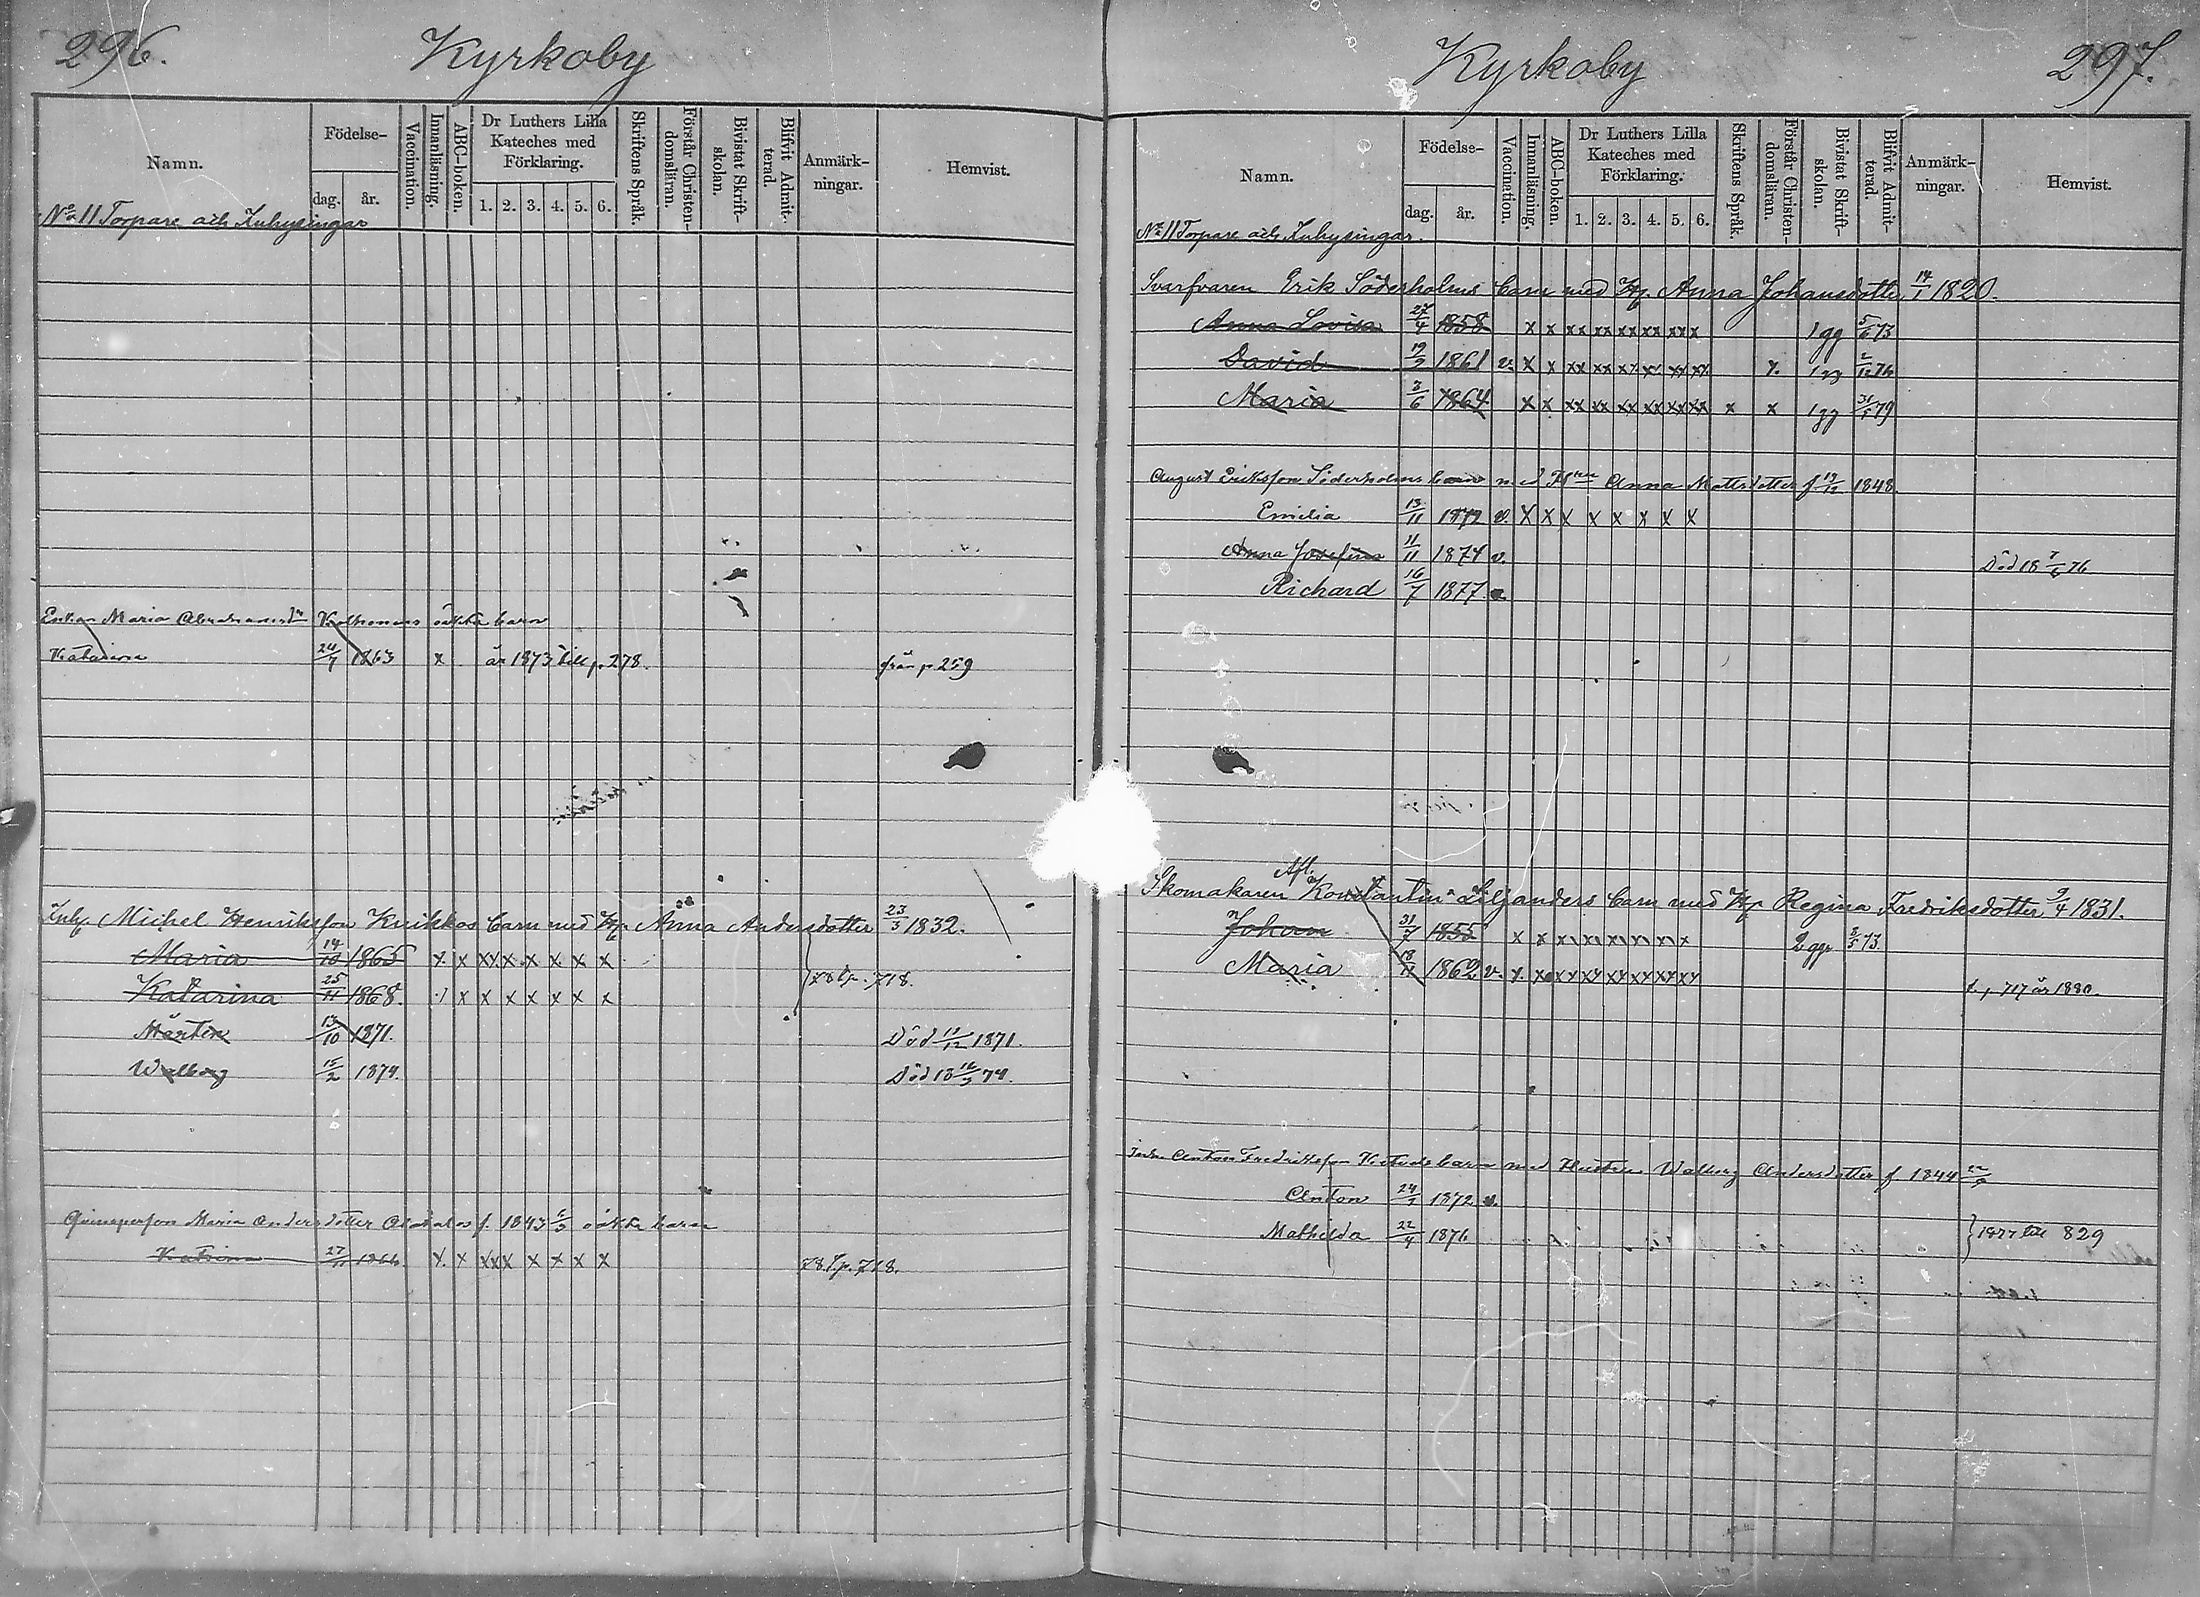 296.
Kyrkoby
Namn.
Födelse-
dag.
år.
Vaccination.
Innanläsning.
ABC-boken.
Dr Luthers Lilla
Kateches med
Förklaring.
1. 2. 3. 4. 5. 6.
Skriftens Språk.
Förstår Christen-
domsläran.
Bivistat Skrift-
skolan.
Blifvit Admit-
terad.
Anmärk-
ningar.
Hemvist.
No 11 Torpare och Inhysingar
Enkan Maria oäkta barn
Katarina 24/7 1863 x år 1873 till p. 278. från p 259
Inhy. Michel Henriksson Knikkos barn med H. Anna Andersdotter 23/3 1832.
Maria 14/10 1865 x x xx x x x x x
Katarina 25/11 1868. x x x x x x x 78 t p. 718.
Mårten 13/10 1871. Död 1871.
Walborg 15/2 1874. Död 18 74.
Qvinsperson Maria Andersdotter f. 1843 oäkta barn
Katrina 27/11 1866 x x xx x x x x x 78 t. p. 718.
Kyrkoby
297.
Namn.
Födelse-
dag.
år.
Vaccination.
Innanläsning.
ABC-boken.
Dr Luthers Lilla
Kateches med
Förklaring.
1. 2. 3. 4. 5. 6.
Skriftens Språk.
Förstår Christen-
domsläran.
Bivistat Skrift-
skolan.
Blifvit Admit-
terad.
Anmärk-
ningar.
Hemvist.
No 11 Torpare och Inhysingar.
Svarfvaren Erik Söderholms barn med H. Anna Johansdotter 14/1 1820.
Anna Lovisa 27/4 1858 x x xx xx xx xx xx x 1 gg 5/6 73
David 19/9 1861 v. x x xx xx xx xx xx xx x. 1 gg 2/12 76
Maria 3/6 1864 x x xx xx xx xx xx xx x x 1 gg 31/5 79
August Eriksson Söderholms barn med Anna Mattsdotter f 1848.
Emilia 13/11 1872 v. x x x x x x x x
Anna Josefina 11/11 1874 v. Död 18 7/6 76
Richard 16/7 1877
Afl.
Skomakaren Konstantin Liljanders barn med H. Regina Fredriksdotter 9/4 1831.
Johan 31/7 1855 x x x x x x x x 2 ggr 8/5 73.
Maria 1862 v. x. x xx xx xx xx xx xx t. p. 717 år 1880.
Anton Fredriksson barn med Hustru Walborg Andersdotter f 1844
Anton 24/3 1872 v.
Mathilda 22/4 1876 } 1877 till 829